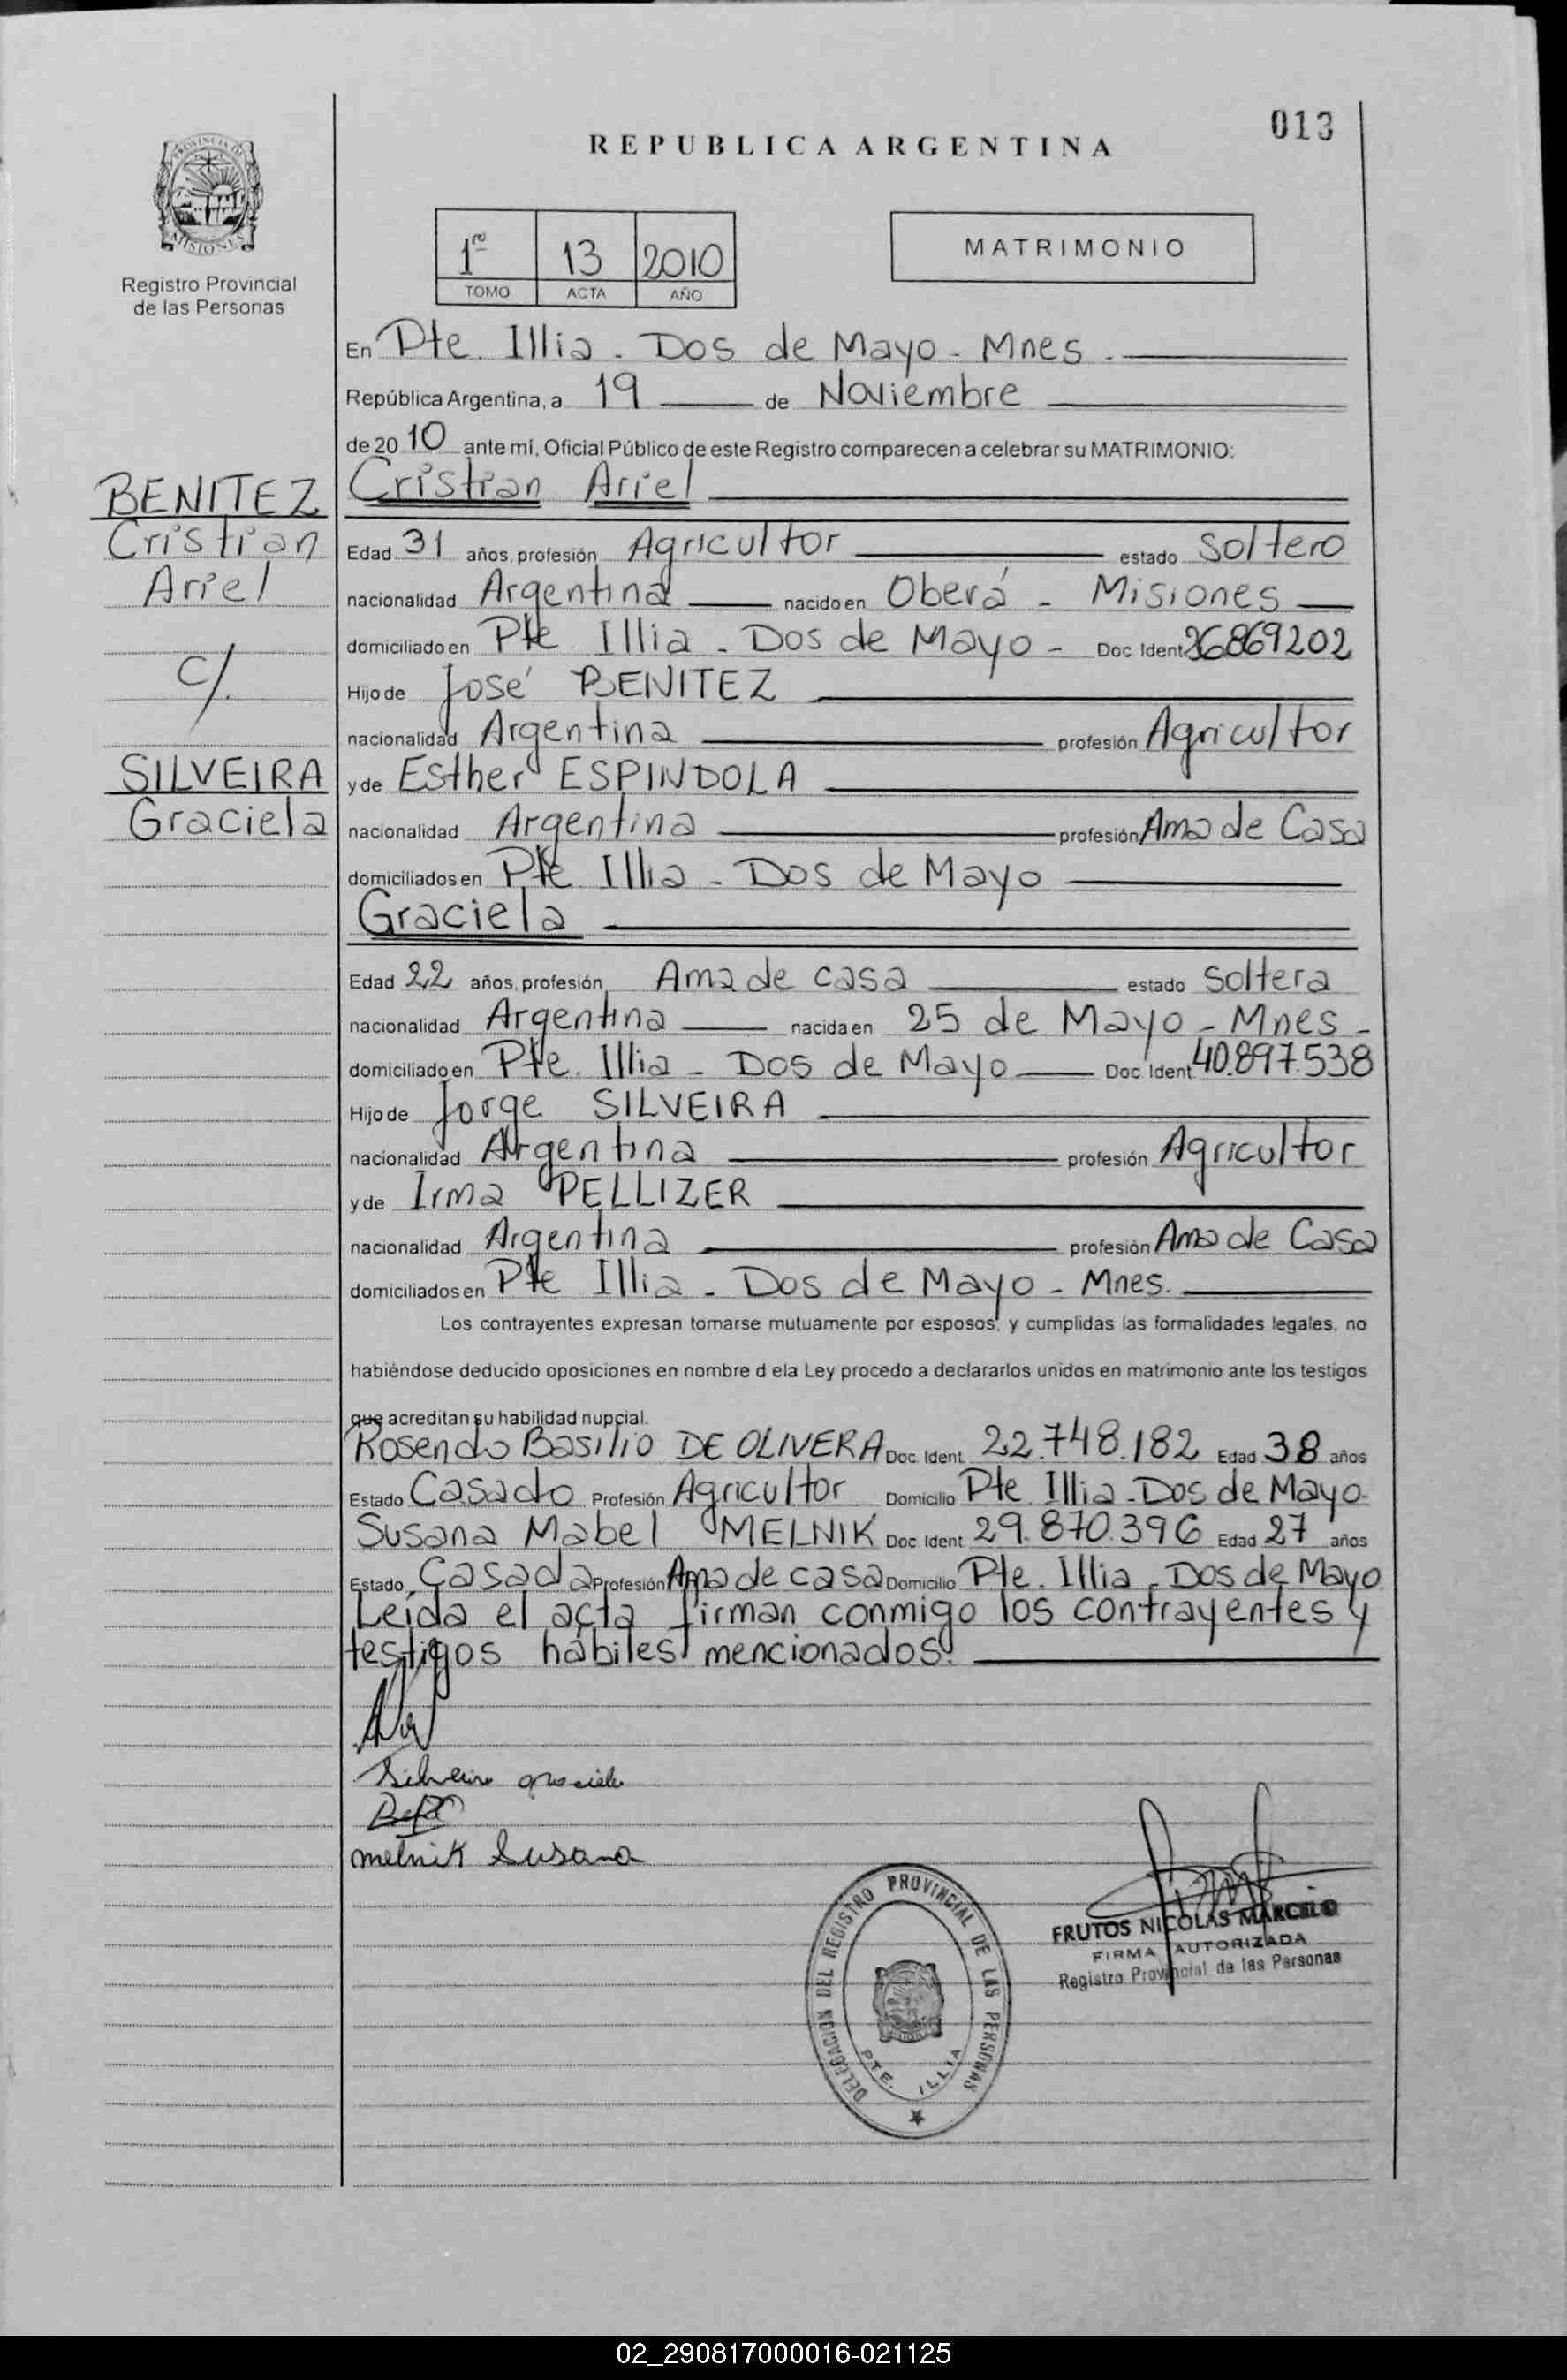 013
REPUBLICA ARGENTINA
PROVINCIA DE
MISIONES
Registro Provincial
de las Personas
1re 13 2010
TOMO ACTA AÑO
MATRIMONIO
En Pte. Illia - Dos de Mayo - Mnes.
República Argentina, a 19 de Noviembre
de 20 10 ante mí, Oficial Público de este Registro comparecen a celebrar su MATRIMONIO:
BENITEZ
Cristian
Ariel
c/.
SILVEIRA
Graciela
Cristian Ariel
Edad 31 años, profesión Agricultor estado Soltero
nacionalidad Argentina nacido en Oberá - Misiones
domiciliado en Pte Illia - Dos de Mayo - Doc Ident 26869202
Hijo de José BENITEZ
nacionalidad Argentina profesión Agricultor
y de Esther ESPINDOLA
nacionalidad Argentina profesión Ama de Casa
domiciliados en Pte Illia - Dos de Mayo
Graciela
Edad 22 años, profesión Ama de casa estado Soltera
nacionalidad Argentina nacida en 25 de Mayo - Mnes -
domiciliado en Pte. Illia - Dos de Mayo Doc Ident 40.897.538
Hijo de Jorge SILVEIRA
nacionalidad Argentina profesión Agricultor
y de Irma PELLIZER
nacionalidad Argentina profesión Ama de Casa
domiciliados en Pte Illia - Dos de Mayo - Mnes.
Los contrayentes expresan tomarse mutuamente por esposos, y cumplidas las formalidades legales, no
habiéndose deducido oposiciones en nombre d ela Ley procedo a declararlos unidos en matrimonio ante los testigos
que acreditan su habilidad nupcial.
Rosendo Basilio DE OLIVERA Doc Ident 22.748.182 Edad 38 años
Estado Casado Profesión Agricultor Domicilio Pte Illia - Dos de Mayo-
Susana Mabel MELNIK Doc Ident 29.870.396 Edad 27 años
Estado Casada Profesión Ama de casa Domicilio Pte. Illia - Dos de Mayo
Leída el acta firman conmigo los contrayentes y
testigos hábiles mencionados.
Silveira graciela
melnik Susana
DELEGACION DEL REGISTRO PROVINCIAL DE LAS PERSONAS
PTE. ILLIA
FRUTOS NICOLAS MARCELO
FIRMA AUTORIZADA
Registro Provincial de las Personas
02_290817000016-021125